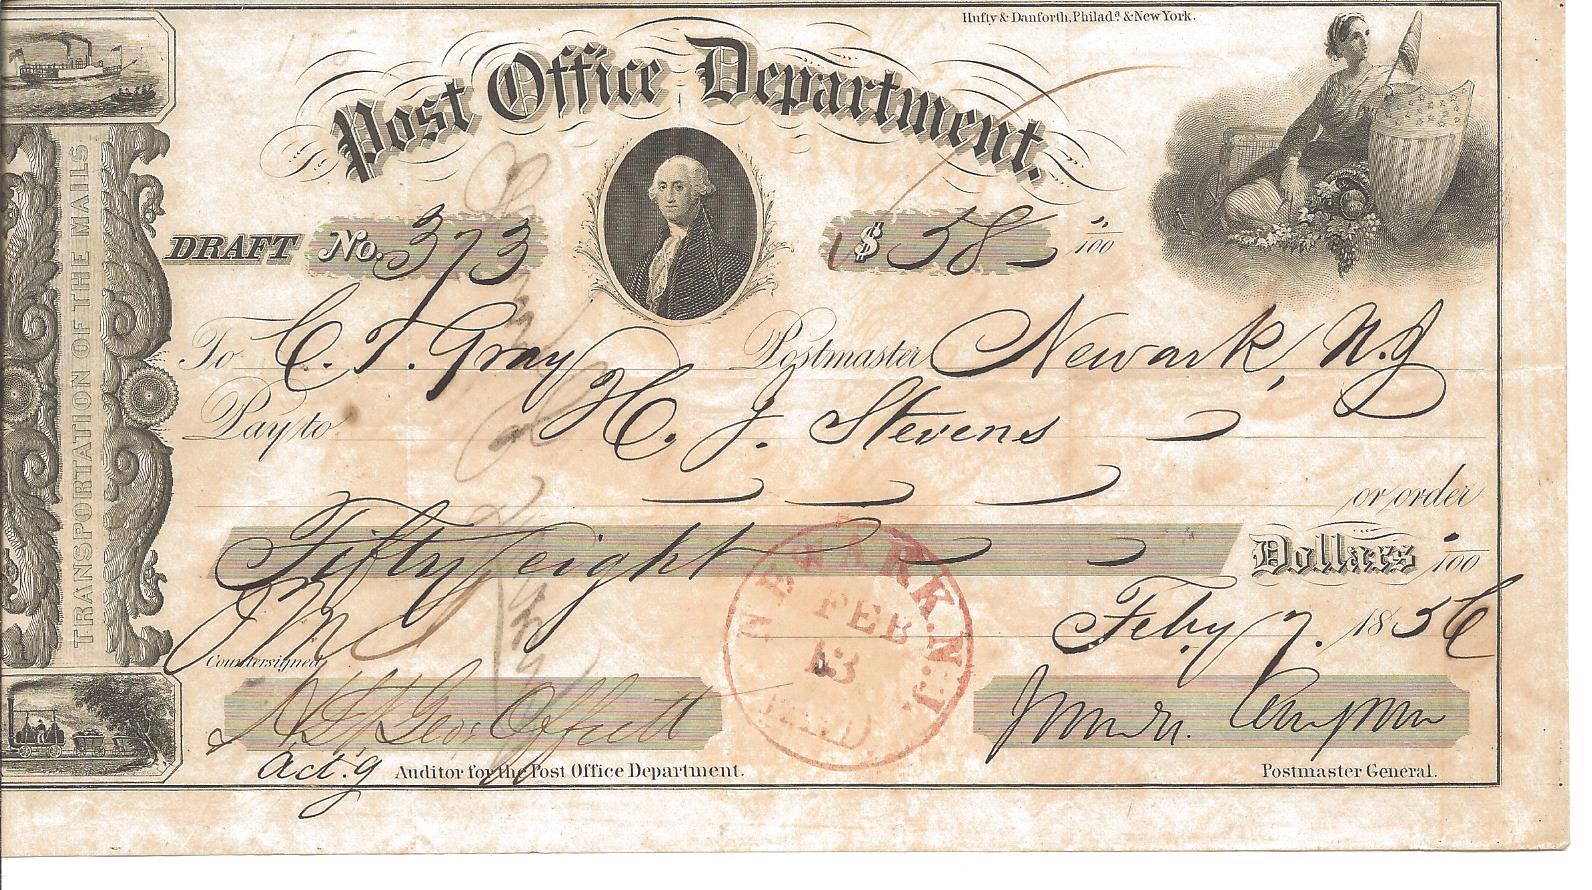 Hufty & Danforth, Philada. & New York.
Post Office Department.
TRANSPORTATION OF THE MAILS
DRAFT No. 373 $ 58 "/100
To C. T. Gray Postmaster Newark, N.J
Pay to H. J. Stevens
or order
Fifty eight Dollars "/100
NEWARK. N.J.
FEB
13
PAID.
Feby 7. 1856
Countersigned,
Geo: Offutt
act.g Auditor for the Post Office Department.
Postmaster General.